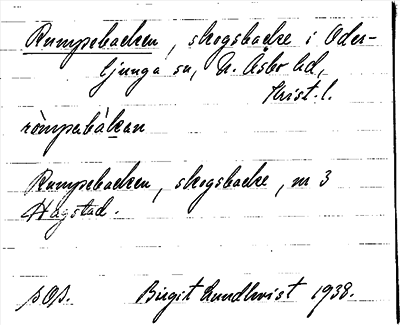 Rumpebacken, skogsbacke i Oder-
ljunga sn, N. Åsbo hd,
Krist. l.
ròmpəbàkan
Rumpebacken, skogsbacke, nr 3
Hagstad.
SOS. Birgit Lundkvist 1938.